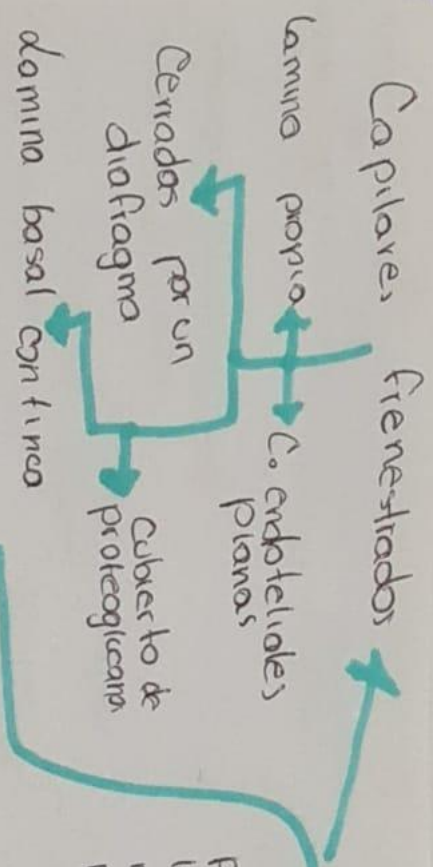 Capilares fienestrados
Lamina propia
C. endoteliales
planas
Cerradas por un
diafragma
Cubierto de
proteoglicana
Lamina basal continua